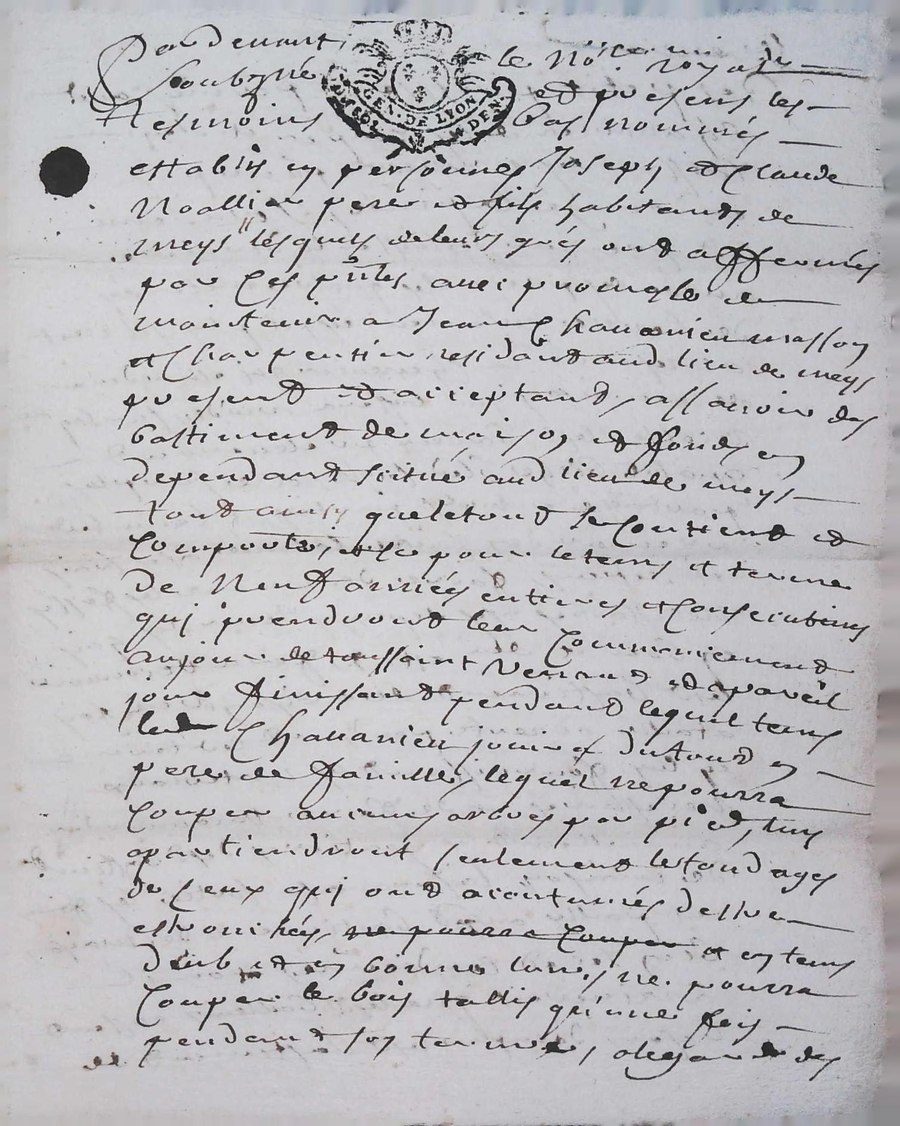 Par devant le No.re royal
soubzné et presens les
tesmoins bas nommés
GEN. DE LYON
DEN.
establis en personnes Joseph et Claude
Noallier pere et fils habitants de
meys lesquels de leurs grés ont affermés
par ces pntes avec promesse de
maintenir a Jean Chavanieu masson
et charpentier residant aud lieu de meys
present et acceptant, assavoir des
bastiment de maison et fonds en
dependant scitué aud lieu de meys
tout ainsy que le tout se contient et
comporte, et ce pour le tems et terme
de Neuf années entieres et consecutives
qui prendront leur commencement
au jour de toussaint venant et a pareil
jour finissant pendant lequel tems
led Chavanieu jouira du tout en
pere de famille, lequel ne pourra
couper aucuns arbres par pied, luy
apartiendront seulement les tondages
de ceux qui ont acoutumés destre
esbranchés, ne pourra couper et en tems
deub et en bonne lune, ne pourra
couper le bois tallis qu'une fois
pendant son terme, a legard des